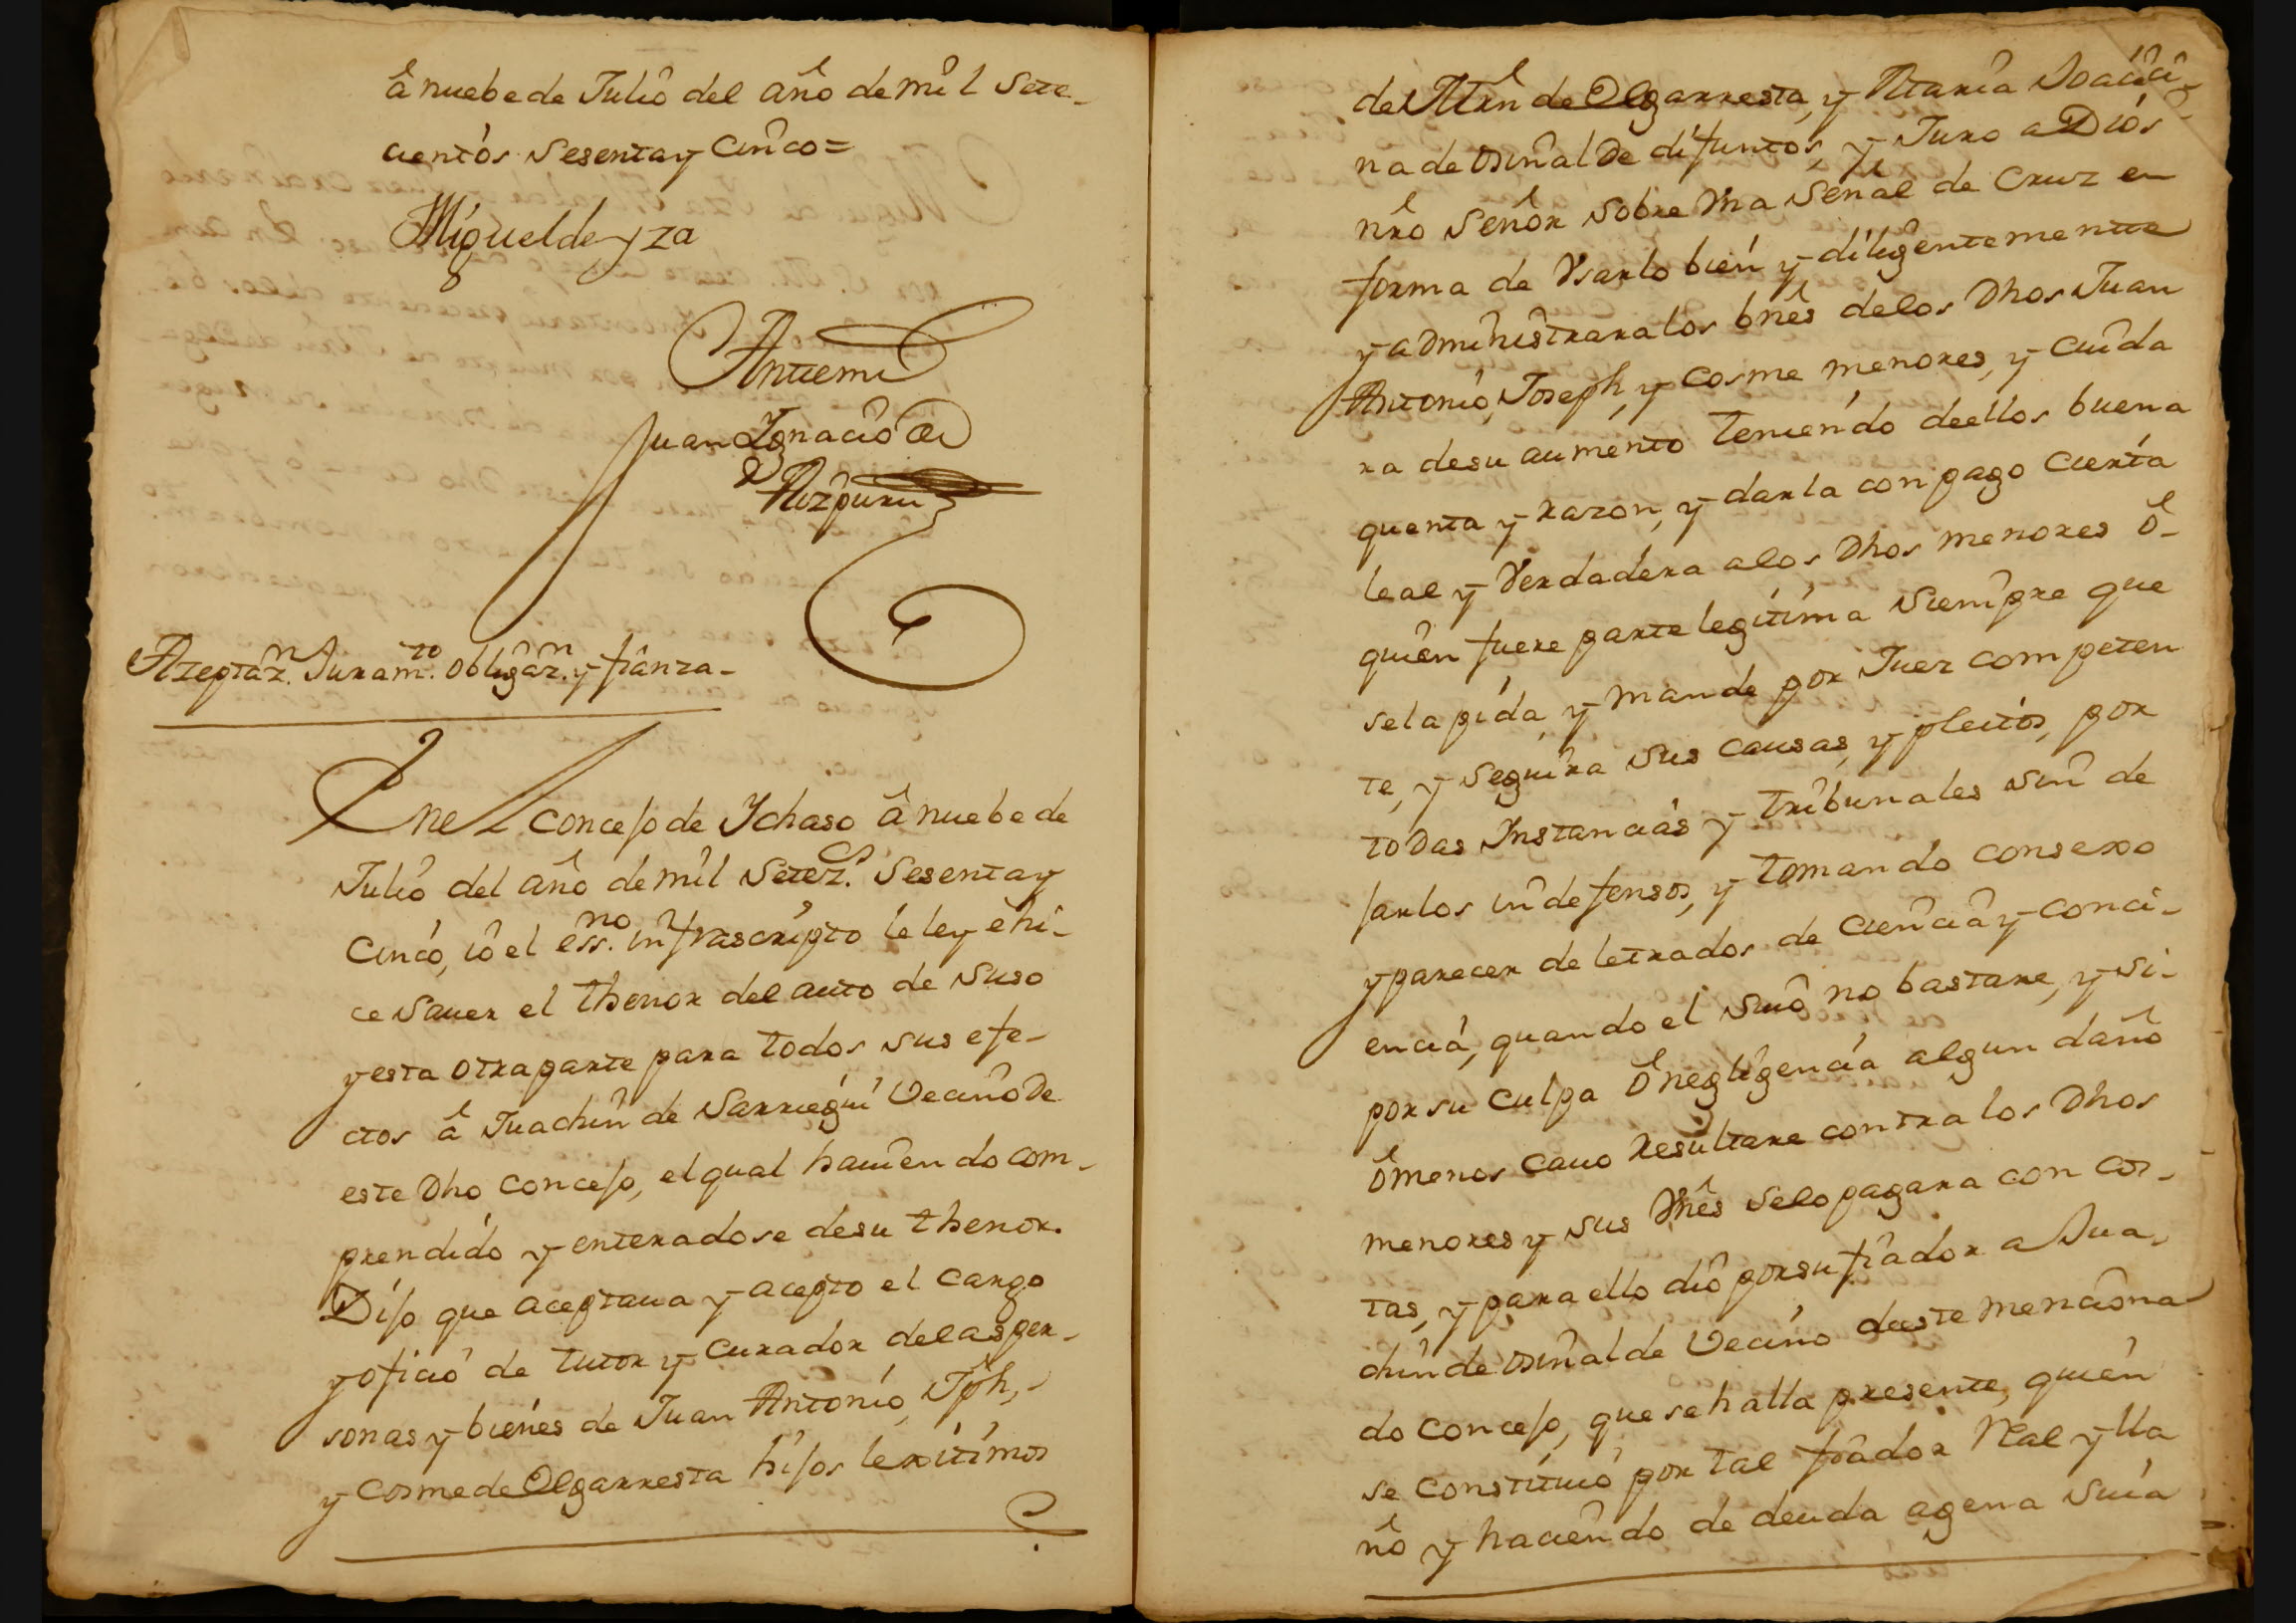 â nuebe de Julio del año de mil sete-
cientos sesenta y cinco=
Miguel de yza
Antemi
Juan Ignacio de
Aizpuru
Azeptaz.n Juram.to obligaz.n y fianza-
En el concejo de Ychaso â nuebe de
Julio del año de mil setez.s sesenta y
cinco, io el ess.no infrascripto le ley e hi-
ce sauer el thenor del auto de suso
y esta otra parte para todos sus efe-
ctos â Juachin de Sarriegui vecino de
este dho concejo, el qual hauiendo com-
prendido y enteradose de su thenor.
Dijo que aceptaua y acepto el cargo
y oficio de tutor y curador de las per-
sonas y bienes de Juan Antonio, Jph,
y Cosme de Olgarresta hijos lexitimos
de Mrn de Olgarresta, y Maria Joachi-
na de osinalde difuntos, y Juro a Dios
nro Señor sobre vna señal de Cruz en
forma de vsarlo bien y diligentemente
y administrara los bnes de los dhos Juan
Antonio, Joseph, y Cosme menores, y cuida
ra de su aumento teniendo de ellos buena
quenta y razon, y darla con pago cierta
leal y verdadera a los dhos menores ô-
quien fuere parte legitima siempre que
se la pida, y mande por Juez competen
te, y seguira sus causas, y pleitos, por
todas Instancias y tribunales sin de
jarlos indefensos, y tomando consexo
y parecer de letrados de ciencia y conci-
encia, quando el suio no bastare, y si-
por su culpa ô negligencia algun daño
ô menos cauo resultare contra los dhos
menores y sus vnes se lo pagara con cos-
tas, y para ello dio por su fiador a Jua-
chin de osinalde vecino deeste menciona
do concejo, que se halla presente, quien
se constituio por tal fiador Real y lla
no y haciendo de deuda agena suia